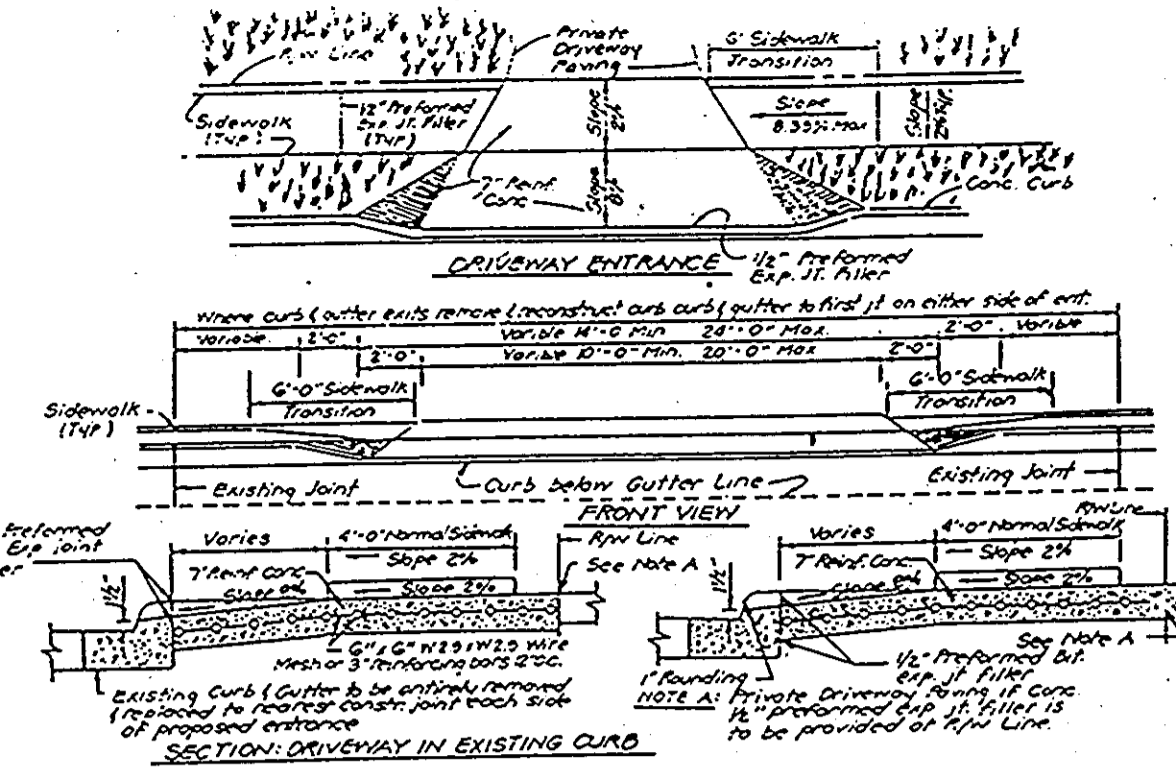 Private
Driveway
Paving
6' Sidewalk
Transition
R/W Line
Sidewalk
(Typ)
1/2" Preformed
Exp. Jt. Filler
(Typ)
Slope
2%
Slope
8.33% Max
Slope
2% Typ.
7" Reinf.
Conc
Slope
8%
Conc. Curb
DRIVEWAY ENTRANCE
1/2" Preformed
Exp. Jt. Filler
Where curb & gutter exits remove & reconstruct curb curb & gutter to first jt on either side of ent.
Variable 2'-0" Varible 14'-0 Min 24'-0" Max. 2'-0" Variable
2'-0" Varible 10'-0" Min. 20'-0" Max 2'-0"
6'-0" Sidewalk
Transition
6'-0" Sidewalk
Transition
Sidewalk
(Typ)
Existing Joint
Curb below Gutter Line
Existing Joint
FRONT VIEW
Preformed
Exp Joint
er
Varies
4'-0" Normal Sidewalk
Slope 2%
R/W Line
See Note A
1 1/2"
7" Reinf. Conc.
Slope 8%
Slope 2%
6" x 6" W2.9 x W2.9 Wire
Mesh or 3" Reinforcing bars 2" O.C.
Existing Curb & Gutter to be entirely removed
& replaced to nearest constr. joint each side
of proposed entrance
SECTION: DRIVEWAY IN EXISTING CURB
R/W Line
Varies
4'-0" Normal Sidewalk
Slope 2%
1 1/2"
7" Reinf. Conc.
Slope 8%
Slope 2%
See Note A
1" Rounding
1/2" Preformed Bit.
exp. jt filler
NOTE A: Private Driveway Paving if Conc.
1/2" preformed exp. jt. filler is
to be provided at R/W Line.